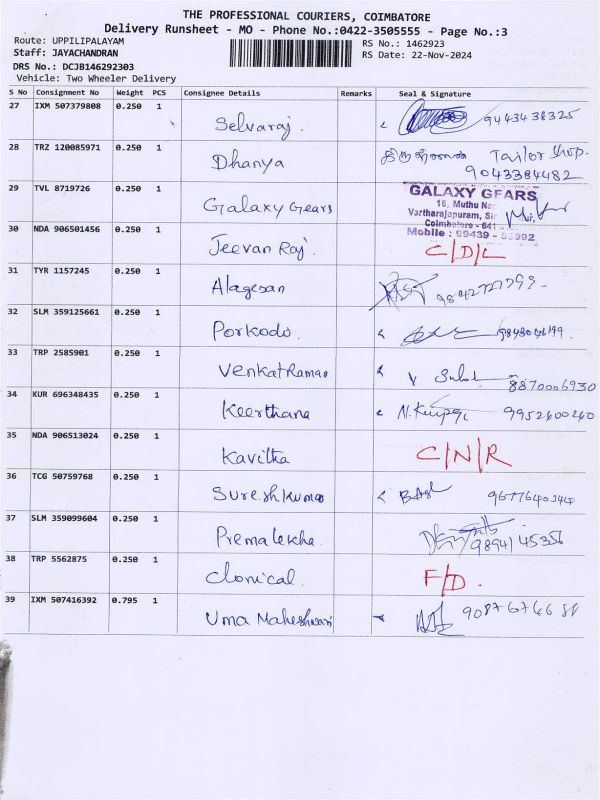 THE PROFESSIONAL COURIERS, COIMBATORE
Delivery Runsheet - MO - Phone No.:0422-3505555 - Page No.:3
Route: UPPILIPALAYAM RS No.: 1462923
Staff: JAYACHANDRAN RS Date: 22-Nov-2024
DRS No.: DCJB146292303
Vehicle: Two Wheeler Delivery
S No Consignment No Weight PCS Consignee Details Remarks Seal & Signature
27 IXM 507379808 0.250 1 Selvaraj.
28 TRZ 120085971 0.250 1 Dhanya Tailor Shop.
9043384482
29 TVL 8719726 0.250 1 Galaxy Gears
GALAXY GEARS
16, Muthu
Vartharajapuram,
Coimbatore - 641
Mobile : 99439 -
30 NDA 906501456 0.250 1 Jeevan Raj. C/D/L
31 TYR 1157245 0.250 1 Alagesan
32 SLM 359125661 0.250 1 Porkodi.
33 TRP 2585901 0.250 1 Venkatraman
8870006930
34 KUR 696348435 0.250 1 Keerthana 9952600260
35 NDA 906513024 0.250 1 Kavitha C/N/R
36 TCG 50759768 0.250 1 Sureshkumar
37 SLM 359099604 0.250 1 Premalekha.
9894145356
38 TRP 5562875 0.250 1 Clonical. F/D.
39 IXM 507416392 0.795 1 Uma Maheshwari